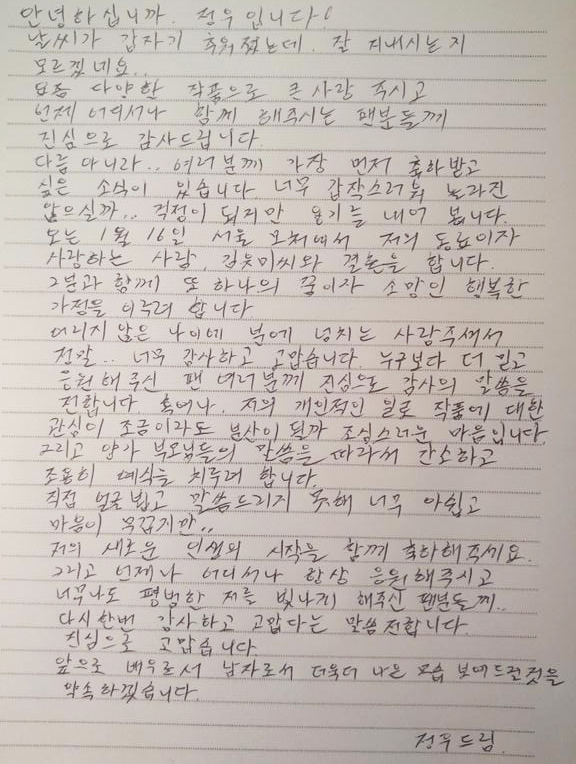 안녕하십니까. 정우입니다!
날씨가 갑자기 추워졌는데. 잘 지내시는지
모르겠네요..
요즘 다양한 작품으로 큰 사랑 주시고
언제 어디서나 함께 해주시는 팬분들께
진심으로 감사드립니다.
다름 아니라.. 여러분께 가장 먼저 축하받고
싶은 소식이 있습니다. 너무 갑작스러워 놀라진
않으실까.. 걱정이 되지만 용기를 내어 봅니다.
오는 1월 16일 서울 모처에서 저의 동료이자
사랑하는 사람, 김유미씨와 결혼을 합니다.
그분과 함께 또 하나의 꿈이자 소망인 행복한
가정을 이루려 합니다
어리지 않은 나이에 분에 넘치는 사랑주셔서
정말.. 너무 감사하고 고맙습니다. 누구보다 더 믿고
응원해 주신 팬 여러분께 진심으로 감사의 말씀을
전합니다. 혹여나. 저의 개인적인 일로 작품에 대한
관심이 조금이라도 분산이 될까 조심스러운 마음입니다.
그리고 양가 부모님들의 말씀을 따라서 간소하고
조용히 예식을 치루려 합니다.
직접 얼굴 뵙고 말씀드리지 못해 너무 아쉽고
마음이 무겁지만..
저의 새로운 인생의 시작을 함께 축하해주세요.
그리고 언제나 어디서나 항상 응원해주시고
너무나도 평범한 저를 빛나게 해주신 팬분들께..
다시한번 감사하고 고맙다는 말씀 전합니다.
진심으로 고맙습니다.
앞으로 배우로서 남자로서 더욱더 나은 모습 보여드릴것을
약속하겠습니다.
정우드림.